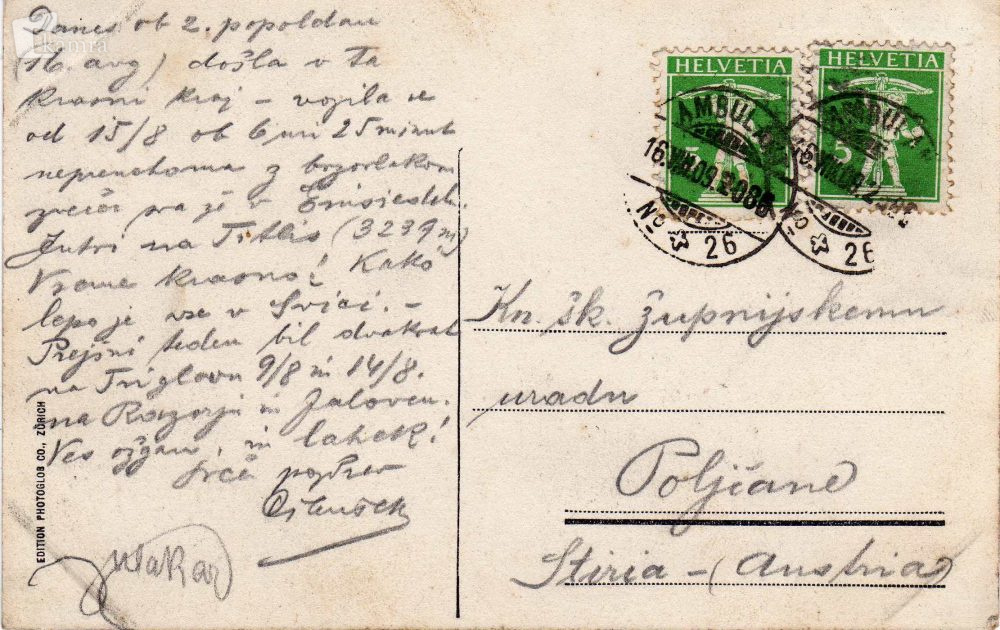 Danes ob 2. popoldan
(16. avg) došla v ta
krasni kraj – vozila se
od 15/8 ob 6 uri 25 minut
neprenehoma z brzovlakom
zvečer sva že v
Jutri na Titlis (3239 m)
Vreme krasno! Kako
lepo je vse v Švici. –
Prejšni teden bil dvakrat
na Triglavu 9/8 in 14/8.
na Razorju in Jalovcu.
Ves ožgan, in lahek!
Srčen pozdrav
EDITION PHOTOGLOB CO., ZÜRICH
Kamra
HELVETIA
5
HELVETIA
5
AMBULANT
16.VIII.09.2
No 26
AMBULANT
16.VIII.09.2
No 26
Kn. šk. župnijskemu
uradu
Poljčane
Stiria – (Austria)